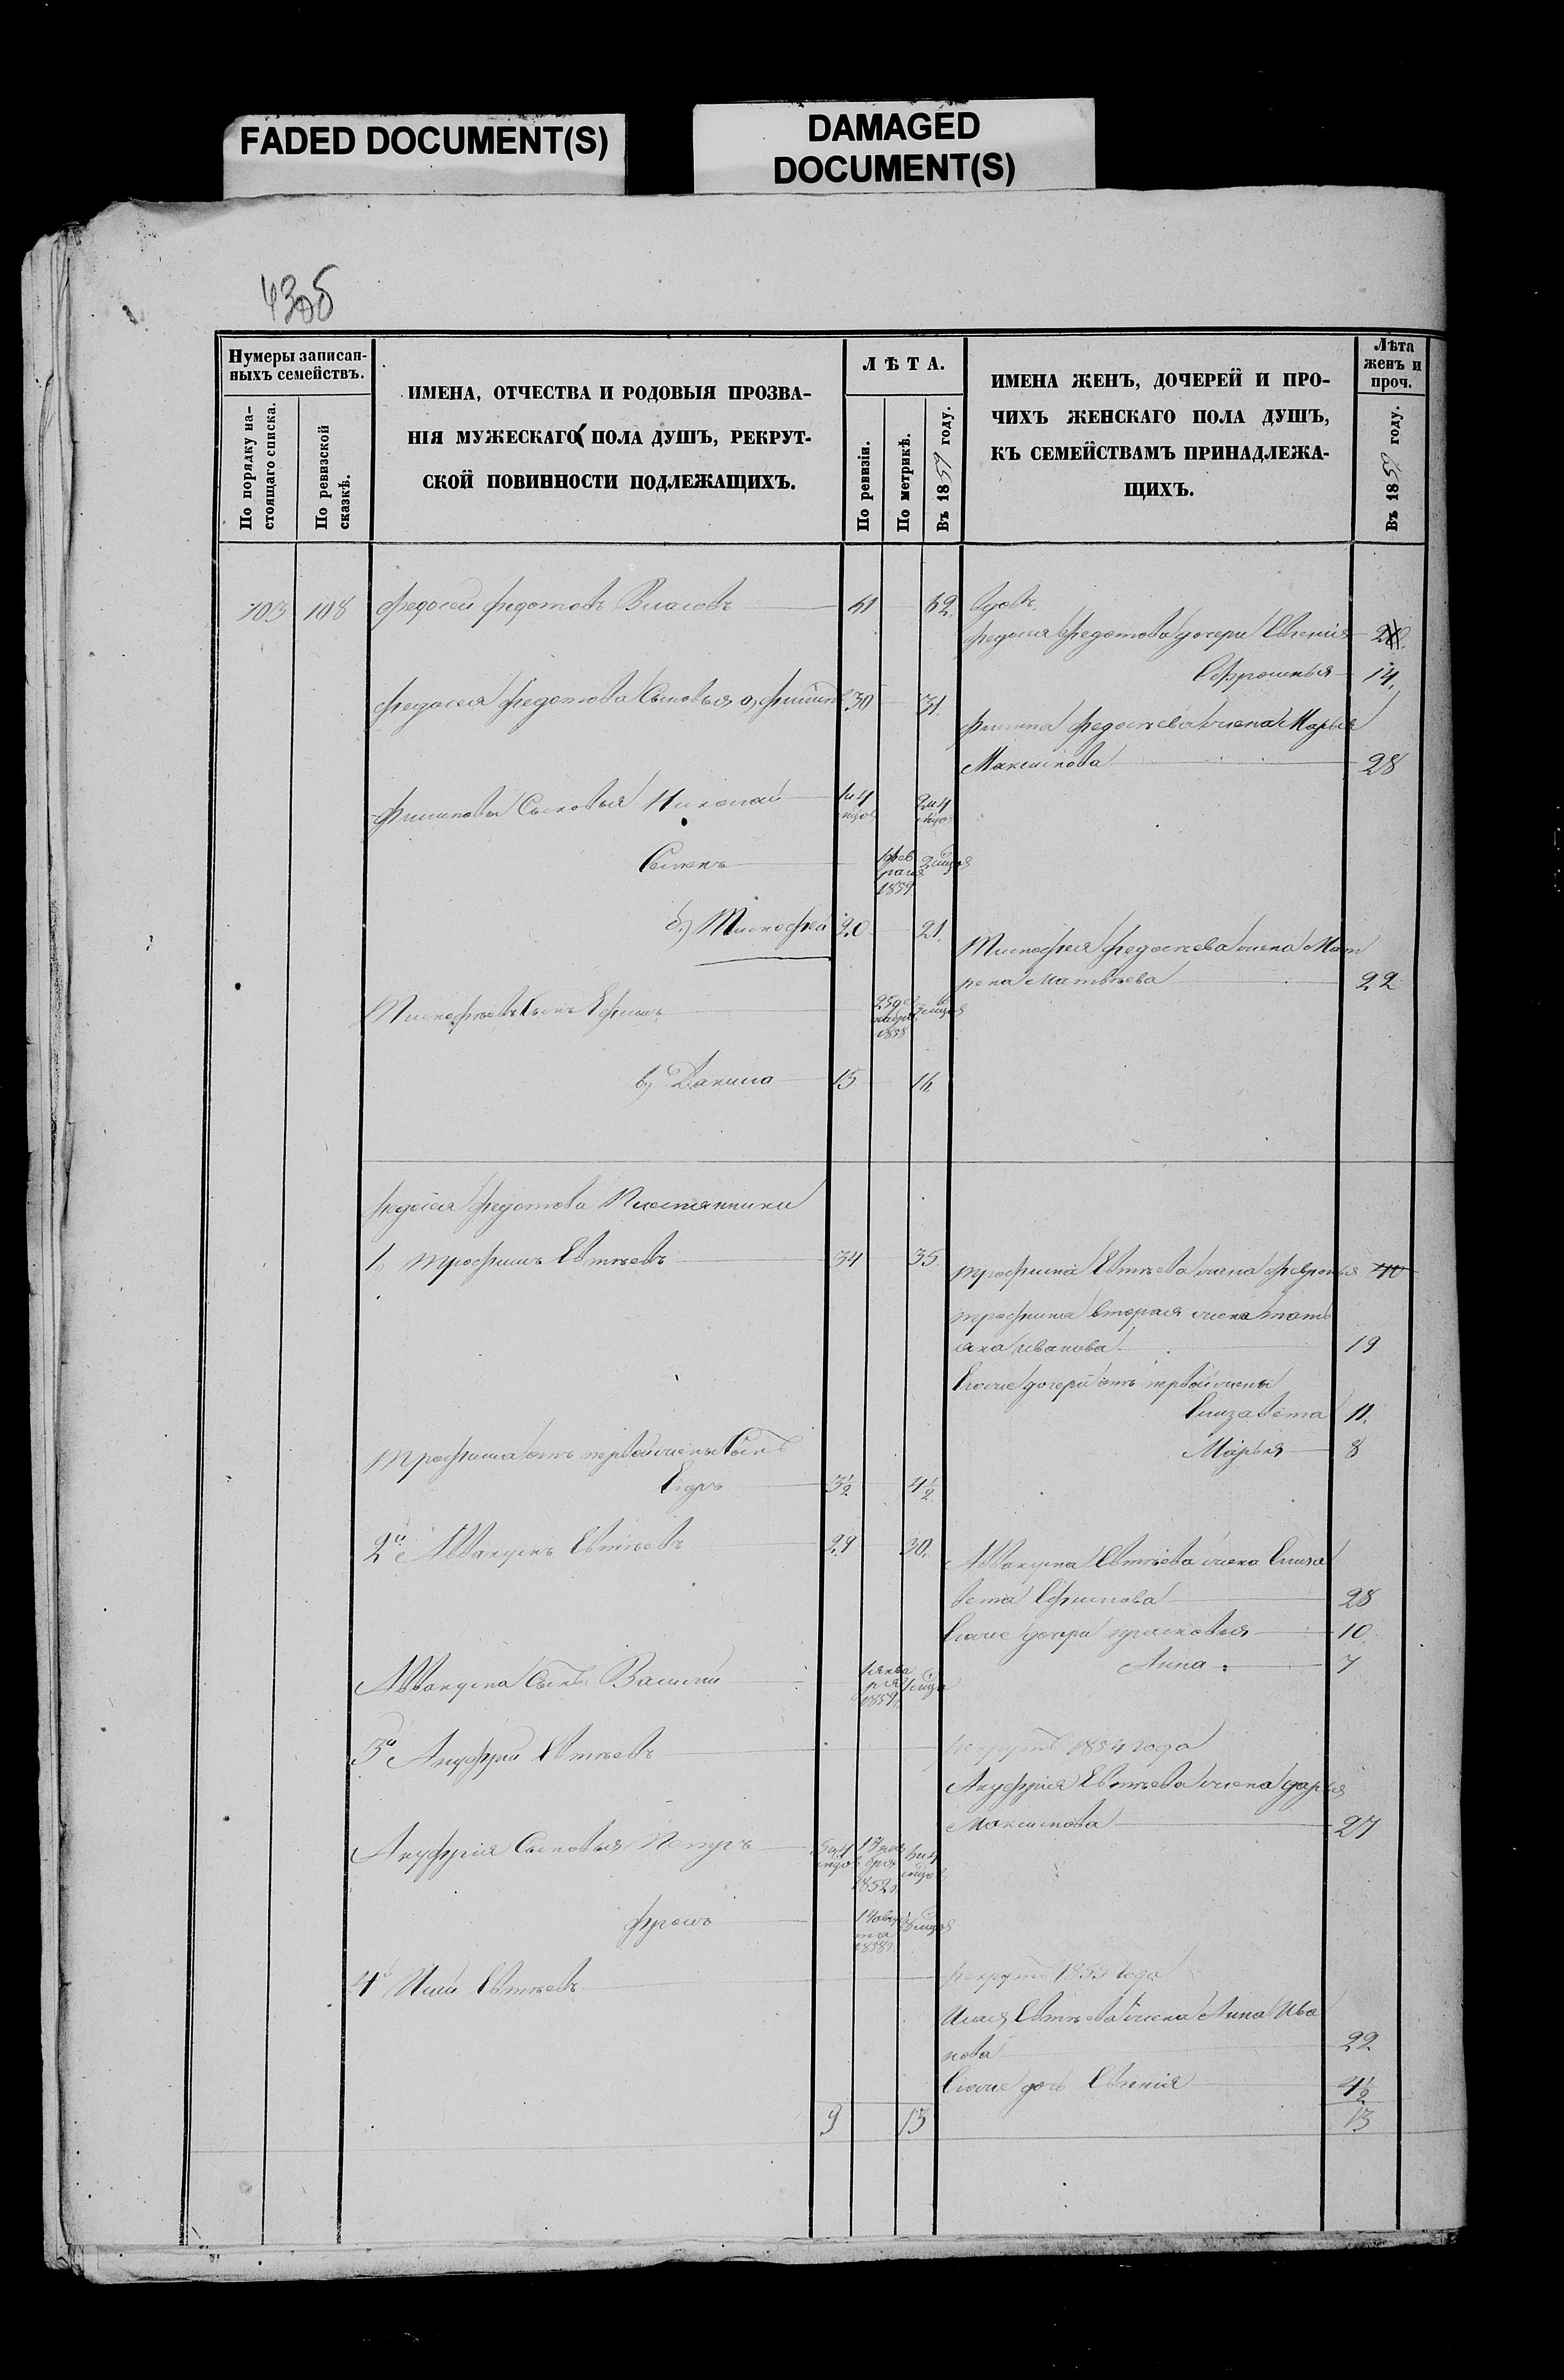 FADED DOCUMENT(S)
DAMAGED
DOCUMENT(S)
Нумеры записан-
ныхъ семействъ.
По порядку на-
стоящаго списка.
По ревизской
сказкѣ.
ИМЕНА, ОТЧЕСТВА И РОДОВЫЯ ПРОЗВА-
НІЯ МУЖЕСКАГО ПОЛА ДУШЪ, РЕКРУТ-
СКОЙ ПОВИННОСТИ ПОДЛЕЖАЩИХЪ.
ЛѢТА.
По ревизіи.
По метрикѣ.
Въ 1859 году.
ИМЕНА ЖЕНЪ, ДОЧЕРЕЙ И ПРО-
ЧИХЪ ЖЕНСКАГО ПОЛА ДУШЪ,
КЪ СЕМЕЙСТВАМЪ ПРИНАДЛЕЖА-
ЩИХЪ.
Лѣта
женъ и
проч.
Въ 1859 году.
103 108 Федосей Федотовъ Власовъ 61 62 вдовъ
Федосея Федотова дочери Евгенія
Ефросинья 14
Федосея Федотова Сыновья а) Филипъ 30 31
Филипа Федосѣева жена Марья
Максимова 28
Филиповы Сыновья Николай
Семенъ 1 фев
раля 1859
б) Тимофей 20 21
Тимофея Федосѣева жена Мат
рена Матвѣева 22
Тимофѣевъ Сынъ Ефимъ 1858
в) Данила 15 16
Федосея Федотова Племянники
1, Трофимъ Евтѣевъ 34 35
Трофима Евтѣева жена Февронья 40
Трофима вторая жена Тать
яна Иванова 19
Его же дочери отъ первой жены
Елизавета 11
Марья 8
Трофима отъ первой жены Сынъ
Егоръ 3½ 4½
2й Аввакумъ Евтѣевъ 29 30
Аввакума Евтѣева жена Елиза
вета Ефимова 28
Его же дочери Прасковья 10
Анна 7
Аввакума Сынъ Василій 1 янва
ря 1859
3й Ануфрій Евтѣевъ рекрутъ 1854 года
Ануфрія Евтѣева жена Дарья
Максимова 27
Ануфрія Сыновья Петръ 1852
Фролъ 1858
4й Илій Евтѣевъ рекрутъ 1855 года
Илія Евтѣева жена Анна Ива
нова 22
Его же дочь Евгенія 4½
9 15 13